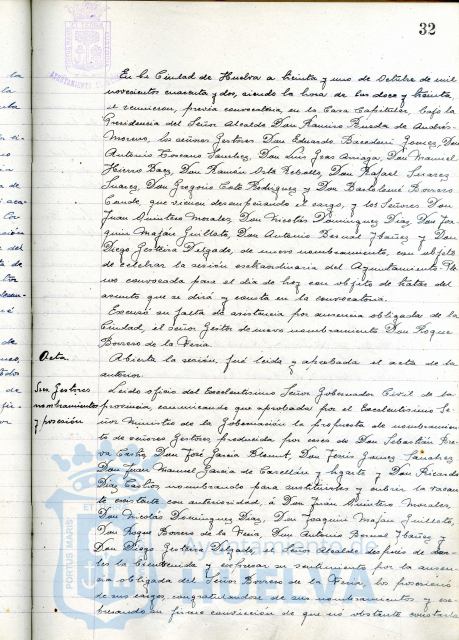 32
En la Ciudad de Huelva a treinta y uno de Octubre de mil
novecientos cuarenta y dos, siendo la hora de las doce y treinta,
se reunieron, previa convocatoria, en la Casa Capitular, bajo la
Presidencia del Señor Alcalde Don Ramiro Rueda de Andrés-
Moreno, los señores Gestores Don Eduardo Gómez, Don
Antonio Toscano Sánchez, Don Luis Arriaga, Don Manuel
Hierro Báez, Don Ramón Rebollo, Don Rafael Suárez
Suárez, Don Gregorio Rodríguez y Don Bartolomé Borrero
Conde, que vienen desempeñando el cargo, y los Señores Don
Juan Quintero Morales, Don Nicolás Domínguez Díaz, Don Joa-
quín Maján Guillote, Don Antonio Bernal Ybáñez y Don
Diego Delgado, de nuevo nombramiento, con objeto
de celebrar la sesión extraordinaria del Ayuntamiento Ple-
no convocada para el día de hoy con objeto de tratar del
asunto que se dirá y consta en la convocatoria.
Excusó su falta de asistencia por ausencia obligada de la
Ciudad, el señor Gestor de nuevo nombramiento Don Roque
Borrero de la Feria.
Acta Abierta la sesión, fué leida y aprobada el acta de la
anterior.
Sres Gestores Leido oficio del Excelentísimo Señor Gobernador Civil de la
nombramientos provincia, comunicando que aprobada por el Excelentísimo Se-
y posesión ñor Ministro de la Gobernación la propuesta de nombramien-
to de señores Gestores producida por ceses de Don Sebastián
Carlos, Don José García Don Gómez Sánchez
Don Juan Manuel García de Castellón y Ugarte y Don Ricardo
Díaz nombrando para sustituirles y cubrir la vacan-
te existente con anterioridad, á Don Juan Quintero Morales,
Don Nicolás Domínguez Díaz, Don Joaquín Maján Guillote,
Don Roque Borrero de la Feria, Don Antonio Bernal Ybáñez y
Don Diego Delgado, el Señor Alcalde después de dar-
les la bienvenida y expresar su sentimiento por la ausen-
cia obligada del Señor Borrero de la Feria, los posesionó
de sus cargos, congratulándose de sus nombramientos y ex-
presando su firme convicción de que no obstante constarle